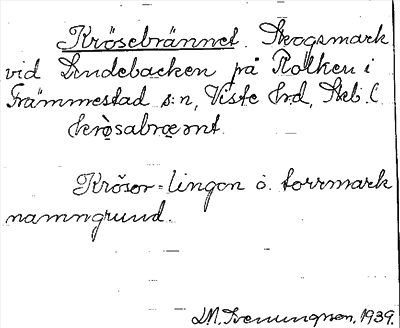 Krösebrännet. Skogsmark
vid Lindebacken på Rolken i
Främmestad s:n, Viste hrd, Skb. l.
krösabrœnt.
Krösor = lingon o. torrmark
namngrund.
1939.